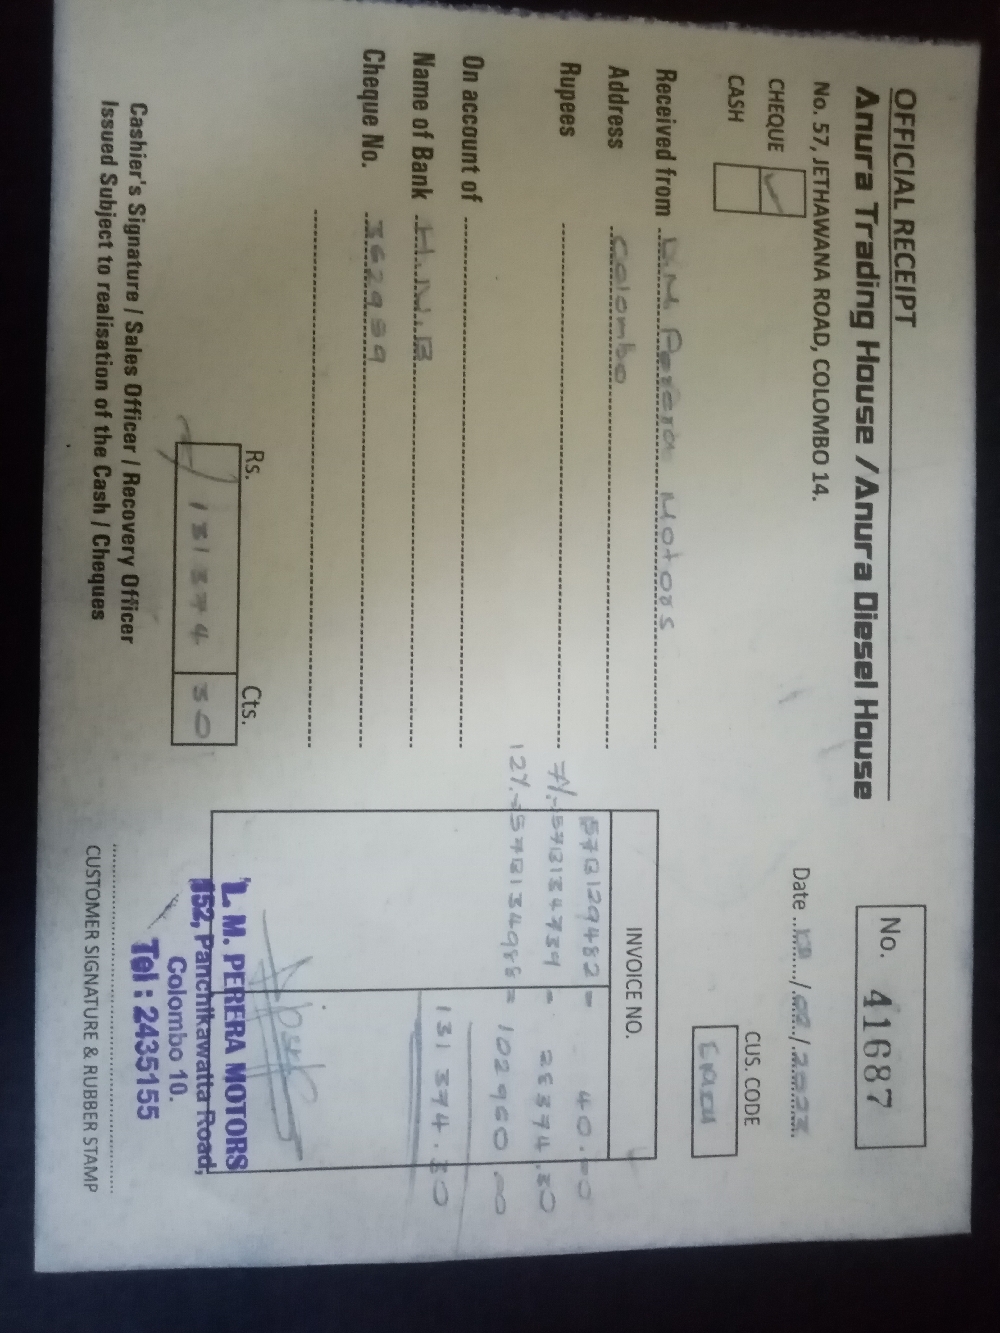 OFFICIAL RECEIPT
Anura Trading House / Anura Diesel House
No. 57, JETHAWANA ROAD, COLOMBO 14.
No. 41687
CHEQUE ✓
CASH
Date
CUS. CODE
Received from L.M. Perera Motors
Address Colombo
Rupees
On account of
Name of Bank H.N.B
Cheque No. 362959
INVOICE NO.
57B129482 = 40.00
7% - 57B134739 = 28374.30
12% - 57B134988 = 102960.00
131 374.30
Rs. Cts.
131 374 30
L. M. PERERA MOTORS
152, Panchikawatta Road,
Colombo 10.
Tel : 2435155
Cashier's Signature / Sales Officer / Recovery Officer
Issued Subject to realisation of the Cash / Cheques
CUSTOMER SIGNATURE & RUBBER STAMP